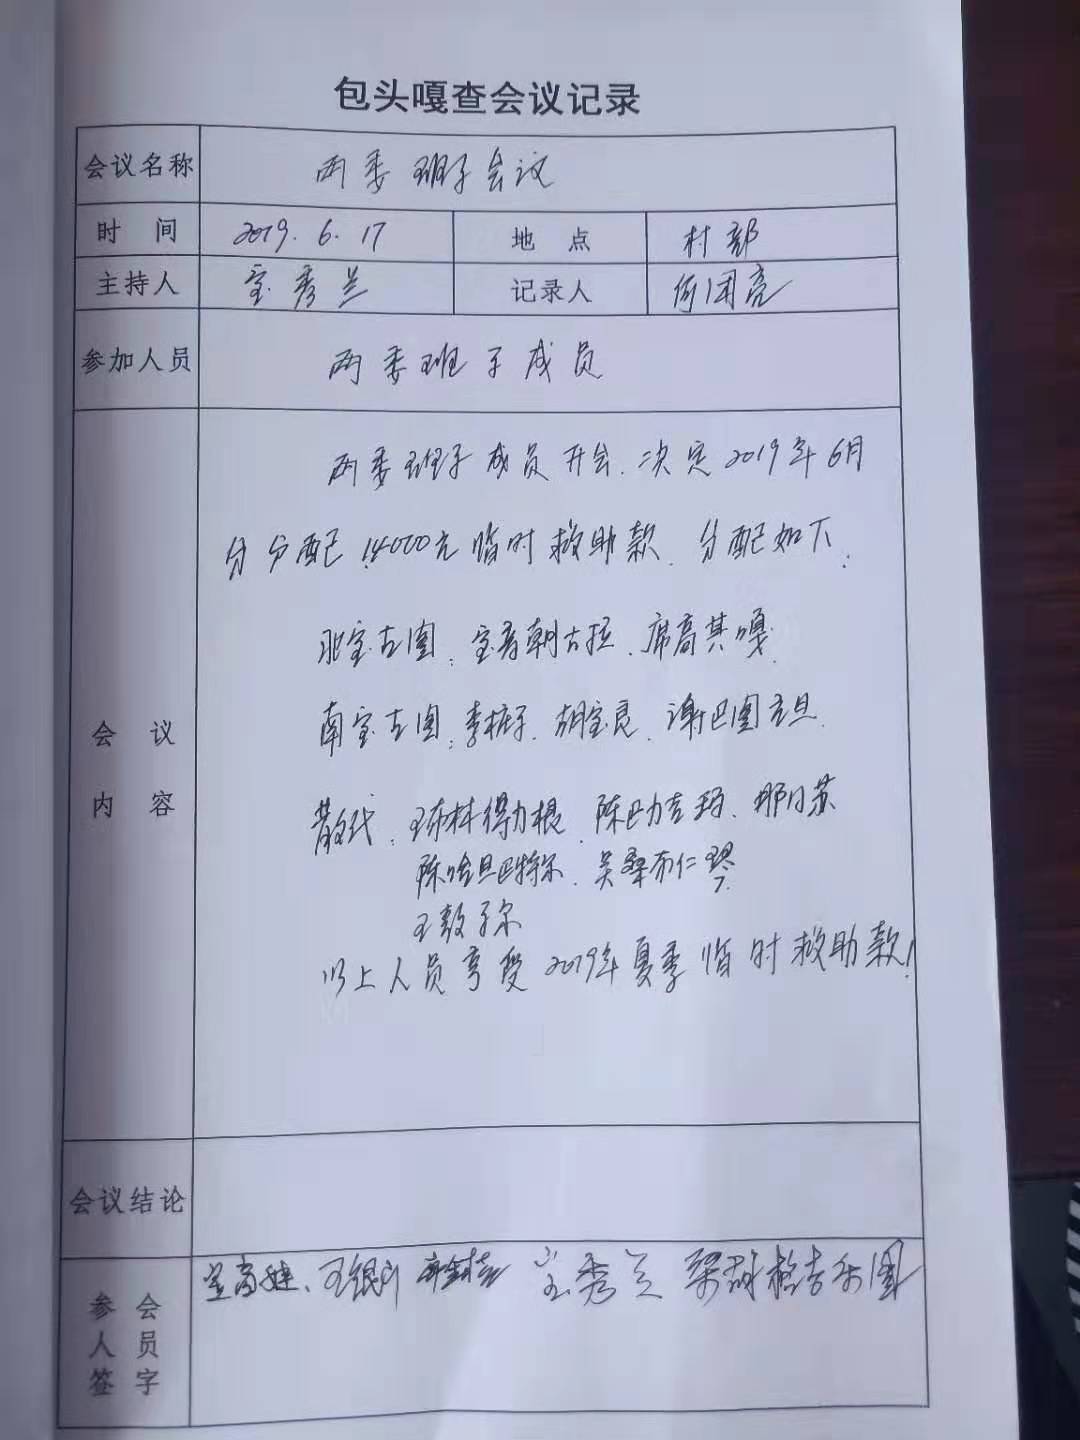 包头嘎查会议记录
会议名称 两委班子会议
时 间 2019.6.17 地 点 村部
主持人 宝秀兰 记录人 何国亮
参加人员 两委班子成员
两委班子成员开会.决定2019年6月
分分配14000元临时救助款.分配如下:
北宝古图:宝音朝古拉.席高其嘎.
会 议 南宝古图:李桩子.胡宝良.谢巴图吉旦.
内 容 散代.王布林得力根.陈巴力吉玛.那日苏
陈哈旦巴特尔.吴桑布仁琴.
以上人员享受2019年夏季临时救助款!
会议结论
宝秀兰
参 会
人 员
签 字